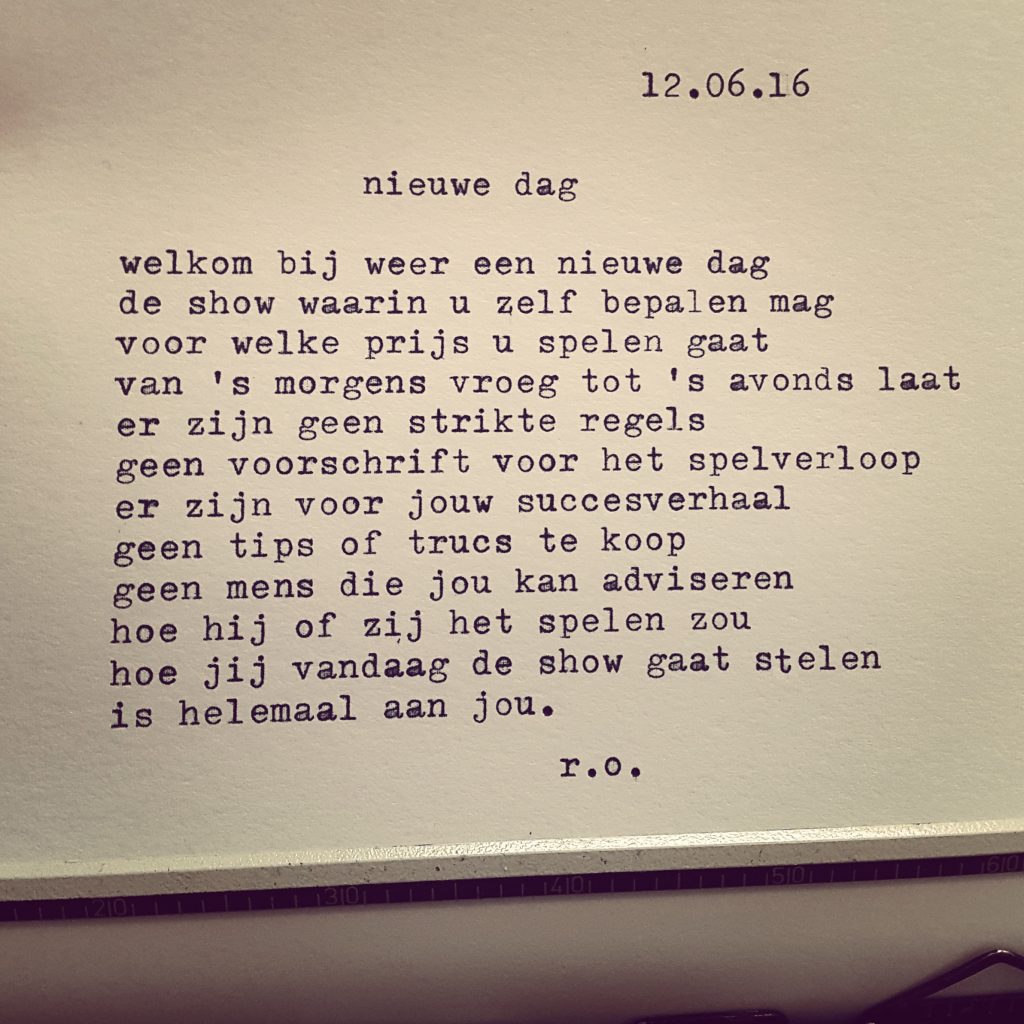 12.06.16
nieuwe dag
welkom bij weer een nieuwe dag
de show waarin u zelf bepalen mag
voor welke prijs u spelen gaat
van 's morgens vroeg tot 's avonds laat
er zijn geen strikte regels
geen voorschrift voor het spelverloop
er zijn voor jouw succesverhaal
geen tips of trucs te koop
geen mens die jou kan adviseren
hoe hij of zij het spelen zou
hoe jij vandaag de show gaat stelen
is helemaal aan jou.
r.o.
20 30 40 50 60